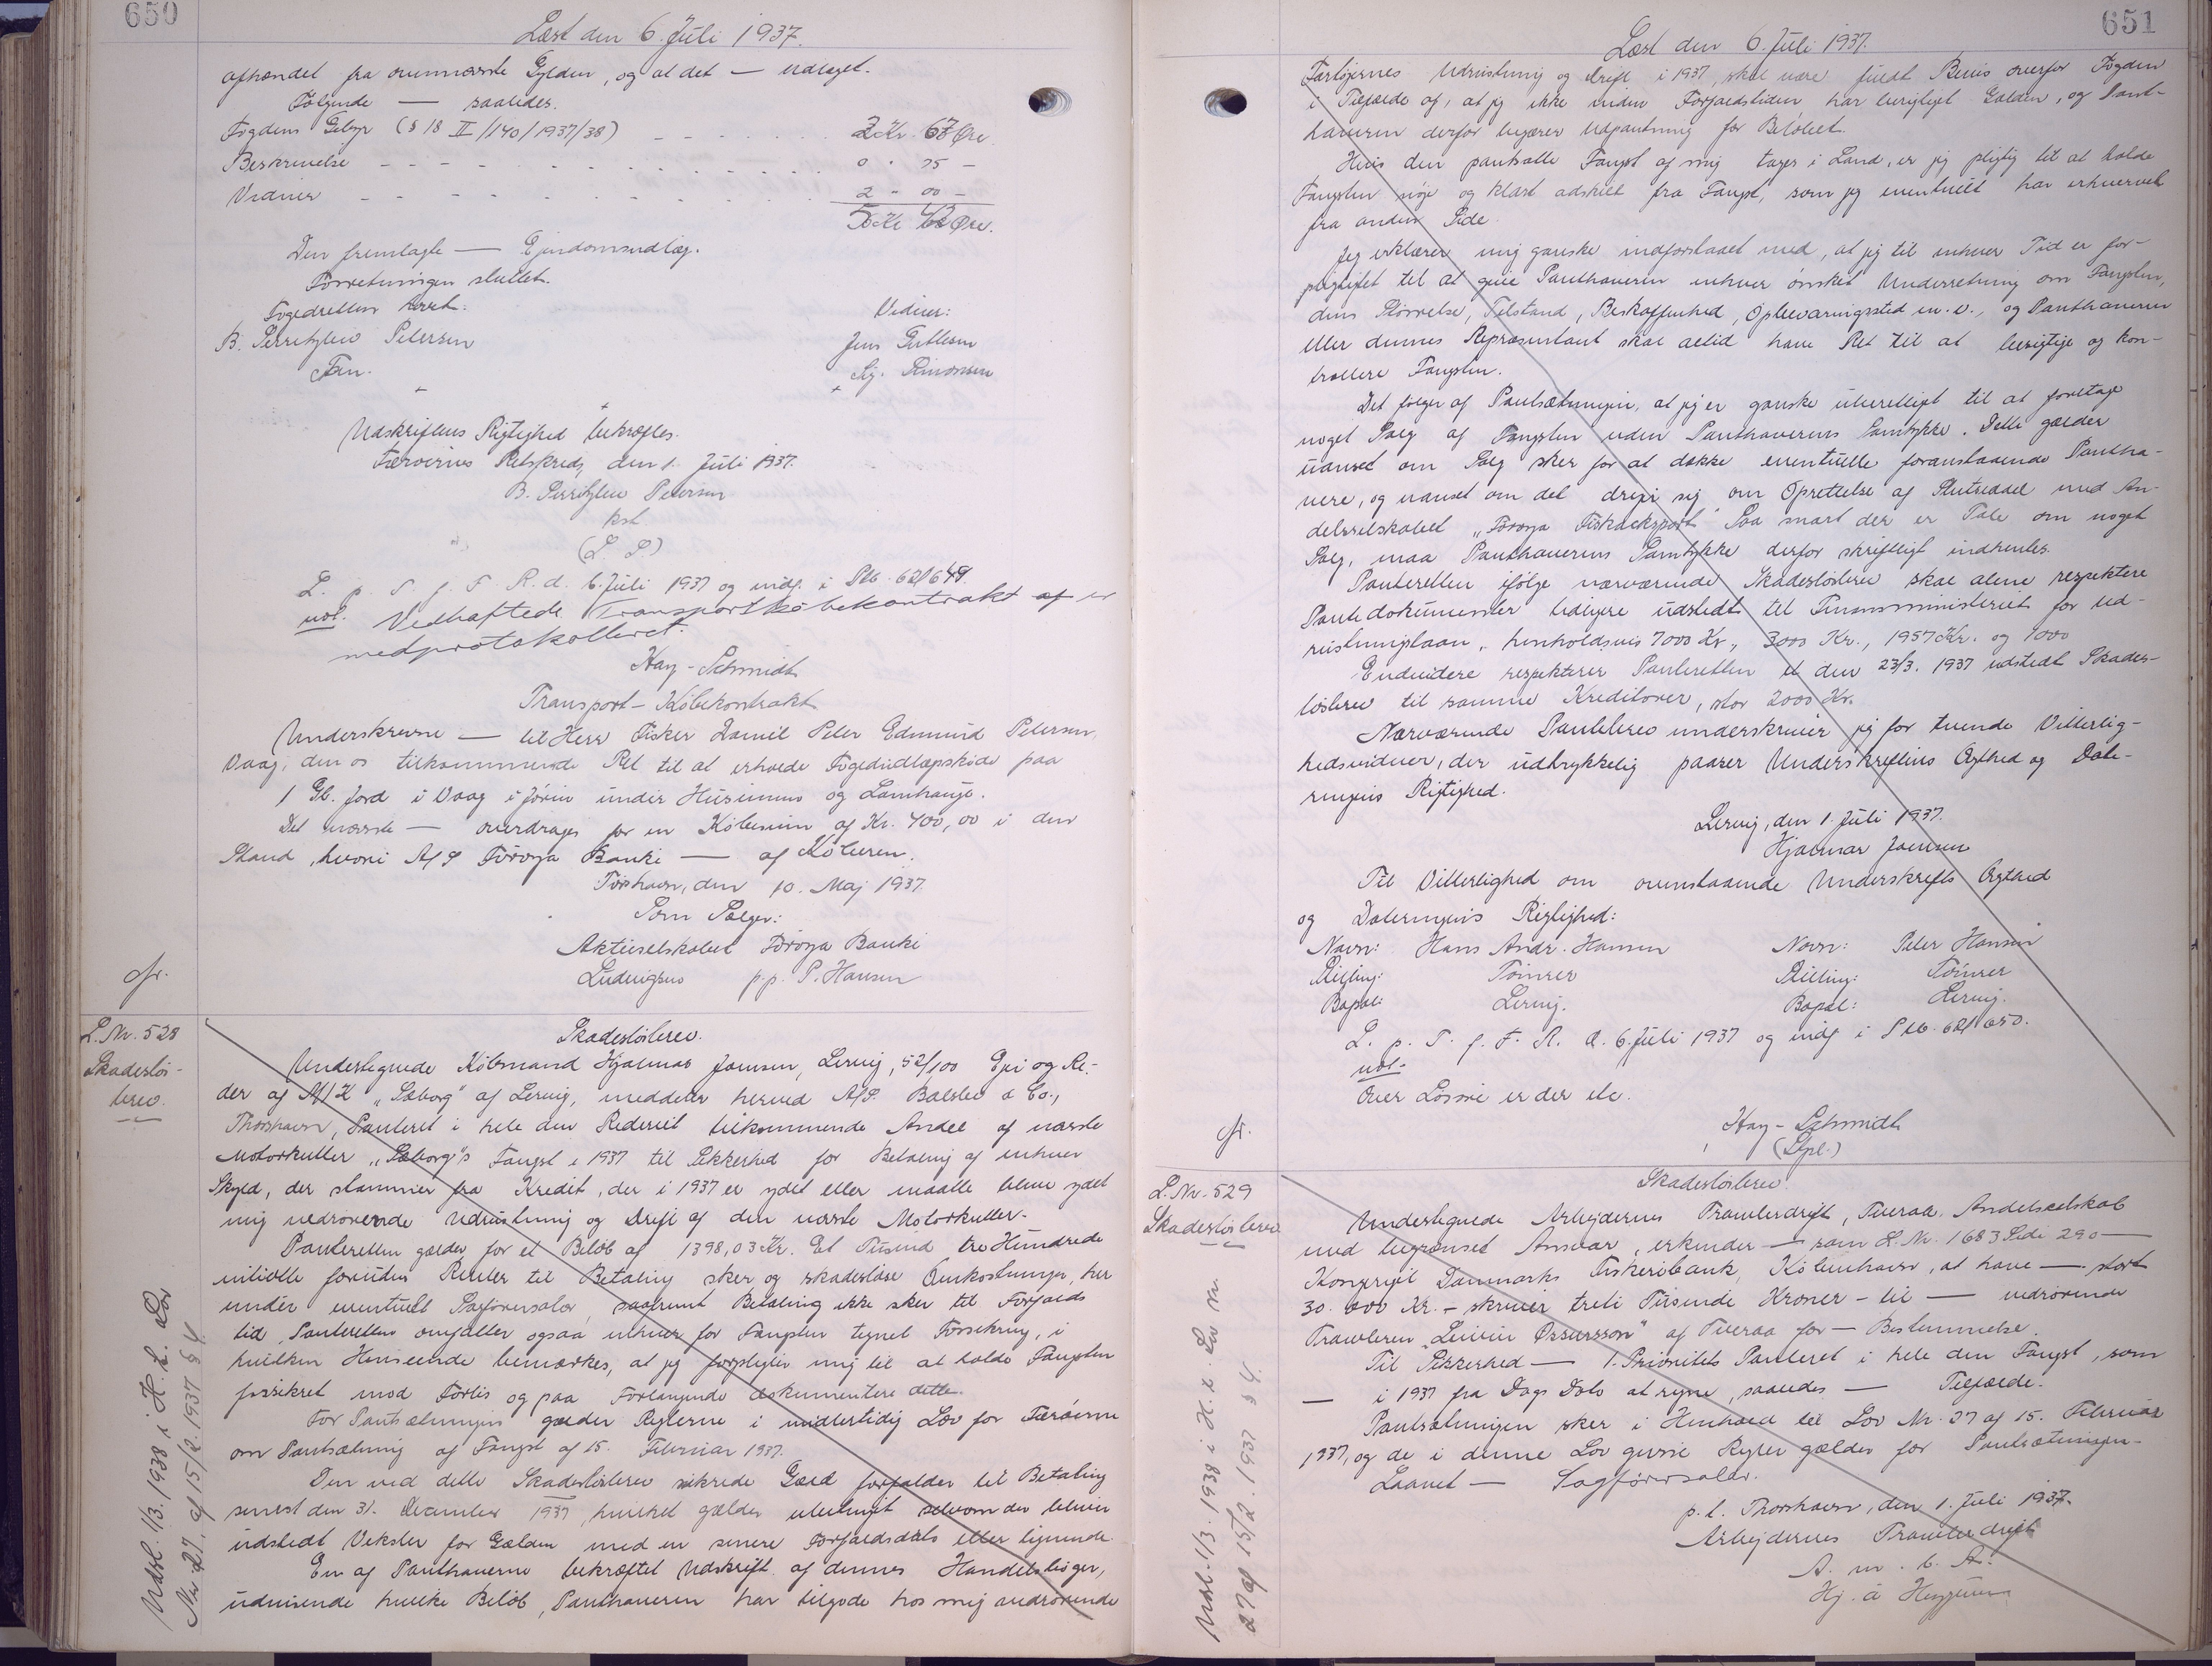 650
Læst den 6. Juli 1937.
afhændet fra ovennævnte Gylden, og at det — udlaget.
Følgende — saaledes.
Fogdens Gebyr (§ 18 II/140/1937/38) 2 Kr. 67 Øre.
Beskrivelse 0 " 75 –
Vidner 2 " 00 –
5 Kr. 42 Øre.
Den fremlagte — Ejendomsudlæg.
Forretningen sluttet.
Fogedretten hævet.
Vidner:
B. Serritzlew Petersen
Jens Guttesen
Fm.
Sig. Simonsen
Udskriftens Rigtighed bekræftes.
Færøernes Retskreds, den 1. Juli 1937.
B. Serritzlew Petersen
kst
(L S.)
L. p. T. f. F. R. d. 6. Juli 1937 og indf. i Skb. 62/649.
udl. Vedhæftede Transportkøbekontrakt af er
medprotokolleret.
Hay-Schmidt
Transport-Købekontrakt
Underskrevne — til Herr Fisker Daniel Peter Edmund Petersen,
Vaag, den os tilkommende Ret til at erholde Fogedudlægsskøde paa
1 Gl. Jord i Vaag i Jórin under Húsimun og Lamhauge.
Det nævnte — overdrages for en Købesum af Kr. 700,00 i den
Stand, hvori A/S Føroya Banki — af Køberen.
Tórshavn, den 10. Maj 1937.
Som Sælger:
Aktieselskabet Føroya Banki
Ludvigsen p.p. P. Hansen
L. Nr. 528
Skadesløs-
brev.
Skadesløsbrev.
Undertegnede Købmand Hjalmar Joensen, Lervig, 52/100 Ejer og Re-
der af M/K "Søborg" af Lervig, meddeler herved A/S. Balslev & Co.,
Thorshavn, Panteret i hele den Rederiet tilkommende Andel af nævnte
Motorkutter "Søborg"s Fangst i 1937 til Sikkerhed for Betaling af enhver
Skyld, der stammer fra Kredit, der i 1937 er ydet eller maatte blive ydet
mig vedrørende Udrustning og Drift af den nævnte Motorkutter.
Panteretten gælder for et Beløb af 1398,03 Kr. Et Tusind tre Hundrede
nitiotte foruden Renter til Betaling sker og skadesløse Omkostninger, her
under eventuelt Sagførersalær, saafremt Betaling ikke sker til Forfalds
tid. Panteretten omfatter ogsaa enhver for Fangsten tegnet Forsikring, i
hvilken Henseende bemærkes, at jeg forpligter mig til at holde Fangsten
forsikret mod Forlis og paa Forlangende dokumentere dette.
For Pantsætningen gælder Reglerne i midlertidig Lov for Færøerne
om Pantsætning af Fangst af 15. Februar 1937.
Den ved dette Skadesløsbrev sikrede Gæld forfalder til Betaling
senest den 31. December 1937, hvilket gælder ubetinget selvom der bliver
udstedt Veksler for Gælden med en senere Forfaldsdato eller lignende.
En af Panthaverne bekræftet Udskrift af dennes Handelsbøger,
udvisende hvilke Beløb, Panthaveren har tilgode hos mig vedrørende
Udsl. 1/3. 1938 i H. t. Lov
Nr. 27 af 15/2. 1937 § 4.
651
Læst den 6. Juli 1937.
Fartøjernes Udrustning og Drift i 1937, skal være fuldt Bevis overfor Fogden
i Tilfælde af, at jeg ikke inden Forfaldstiden har berigtiget Gælden, og Pant-
haveren derfor begærer Udpantning for Beløbet.
Hvis den pantsatte Fangst af mig tages i Land, er jeg pligtig til at holde
Fangsten nøje og klart adskilt fra Fangst, som jeg eventuelt har erhvervet
fra anden Side.
Jeg erklærer mig ganske indforstaaet med, at jeg til enhver Tid er for-
pligtet til at give Panthaveren enhver ønsket Underretning om Fangsten,
dens Størrelse, Tilstand, Beskaffenhed, Opbevaringssted m.v., og Panthaveren
eller dennes Repræsentant skal altid have Ret til at besigtige og kon-
trollere Fangsten.
Det følger af Pantsætningen, at jeg er ganske uberettiget til at foretage
noget Salg af Fangsten uden Panthaverens Samtykke. Dette gælder
uanset om Salg sker for at dække eventuelle foranstaaende Pantha-
vere, og uanset om det drejer sig om Oprettelse af Slutseddel med An-
delsselskabet "Føroya Fiskaeksport". Saa snart der er Tale om noget
Salg, maa Panthaverens Samtykke derfor skriftligt indhentes.
Panteretten ifølge nærværende Skadesløsbrev skal alene respektere
Pantedokumenter tidligere udstedt til Finansministeriet for Ud-
rustningslaan, henholdsvis 7000 Kr., 3000 Kr., 1957 Kr. og 1000
Endvidere respekterer Panteretten et den 23/3. 1937 udstedt Skades-
løsbrev til samme Kreditorer, stor 2000 Kr.
Nærværende Pantebrev underskriver jeg for tvende Vitterlig-
hedsvidner, der udtrykkelig paaser Underskriftens Ægthed og Date-
ringens Rigtighed.
Lervig, den 1. Juli 1937.
Hjalmar Joensen
Til Vitterlighed om ovenstaaende Underskrifts Ægthed
og Dateringens Rigtighed:
Navn: Hans Andr. Hansen Navn: Peter Hansen
Stilling: Tømrer Stilling: Tømrer
Bopæl: Lervig. Bopæl: Lervig.
L. p. T. f. F. R. d. 6. Juli 1937 og indf. i Skb. 62/650.
udl.
Over Løsøre er der etc.
Hay-Schmidt
(Stpl.)
L. Nr. 529
Skadesløsbrev
Skadesløsbrev.
Undertegnede Arbejdernes Trawlerdrift, Tveraa, Andelsselskab
med begrænset Ansvar, erkender — som L. Nr. 1683 Side 290 —
Kongeriget Danmarks Fiskeribank, København, at have — stort
30.000 Kr. – skriver treti Tusinde Kroner – til — vedrørende
Trawleren "Leivur Øssursson" af Tveraa for — Bestemmelse.
Til Sikkerhed — 1. Prioritets Panteret i hele den Fangst, som
— i 1937 fra Dags Dato at regne, saaledes — Tilfælde.
Pantsætningen sker i Henhold til Lov Nr. 27 af 15. Februar
1937, og de i denne Lov givne Regler gælder for Pantsætningen.
Laanet — Sagførersalær.
p. t. Thorshavn, den 1. Juli 1937.
Arbejdernes Trawlerdrift
A. m. b. A.
Hj. á Heygum
Udsl. 1/3. 1938 i H. t. Lov nr.
27 af 15/2. 1937 § 4.